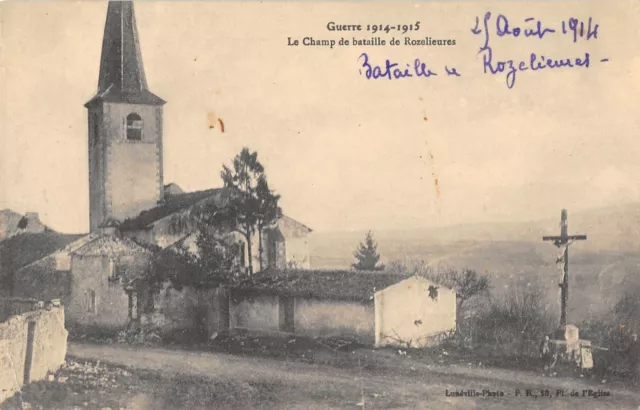 Guerre 1914-1915
Le Champ de bataille de Rozelieures
25 Août 1914
Bataille de Rozelieures -
Lunéville-Photo - P. R., 10, Pl. de l'Eglise